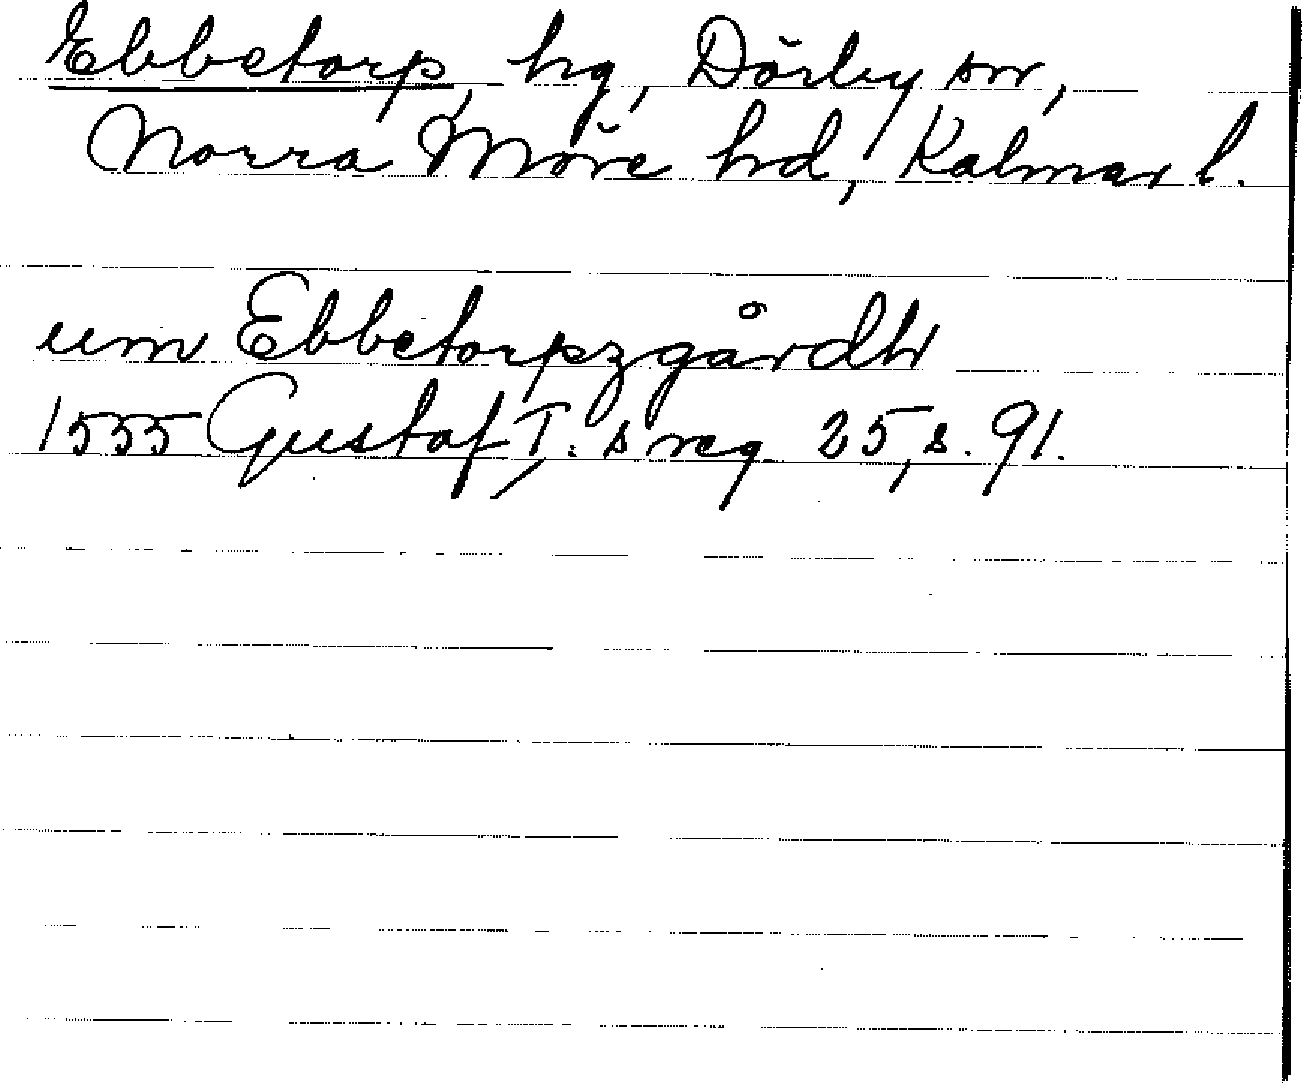 Ebbetorp, hg, Dörby sn,
Norra Möre hd, Kalmar l.
um Ebbetorpzgårdh
1555 Gustaf I:s reg 25, s. 91.